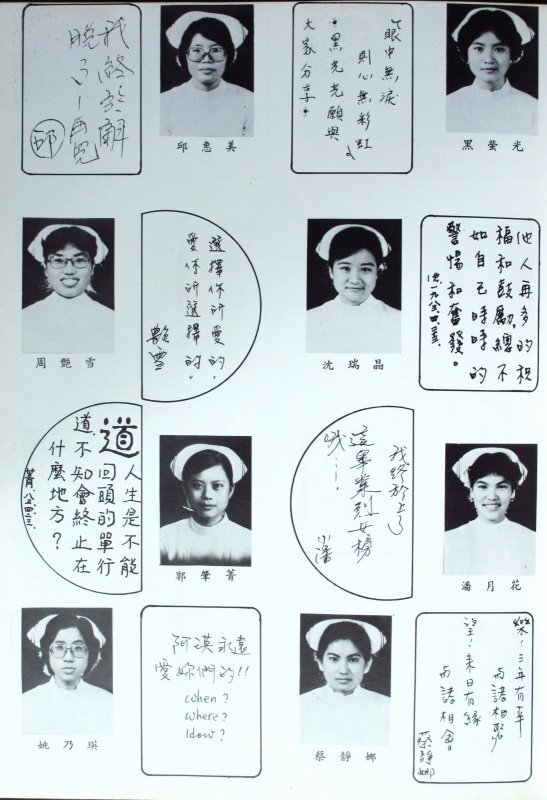 我終於解
脫了!再見
邱
邱惠美
眼中無淚
則心無彩虹
黑光光願與
大家分享
黑螢光
選擇你所愛的,
愛你所選擇的。
艷雪
周艷雪
他人再多的祝
福和鼓勵,總不
如自己時時的
警惕和奮發。
沈瑞晶
道
人生是不能
回頭的單行
道.不知會終止在
什麼地方?
菁
郭肇菁
我終於上了
這畢業烈女榜
哦…!
小潘
潘月花
阿瑛永遠
愛妳們的!!
when?
where?
How?
姚乃瑛
樂!三年有幸
與諸相聚
望!來日有緣
與諸相會
蔡靜娜
蔡靜娜